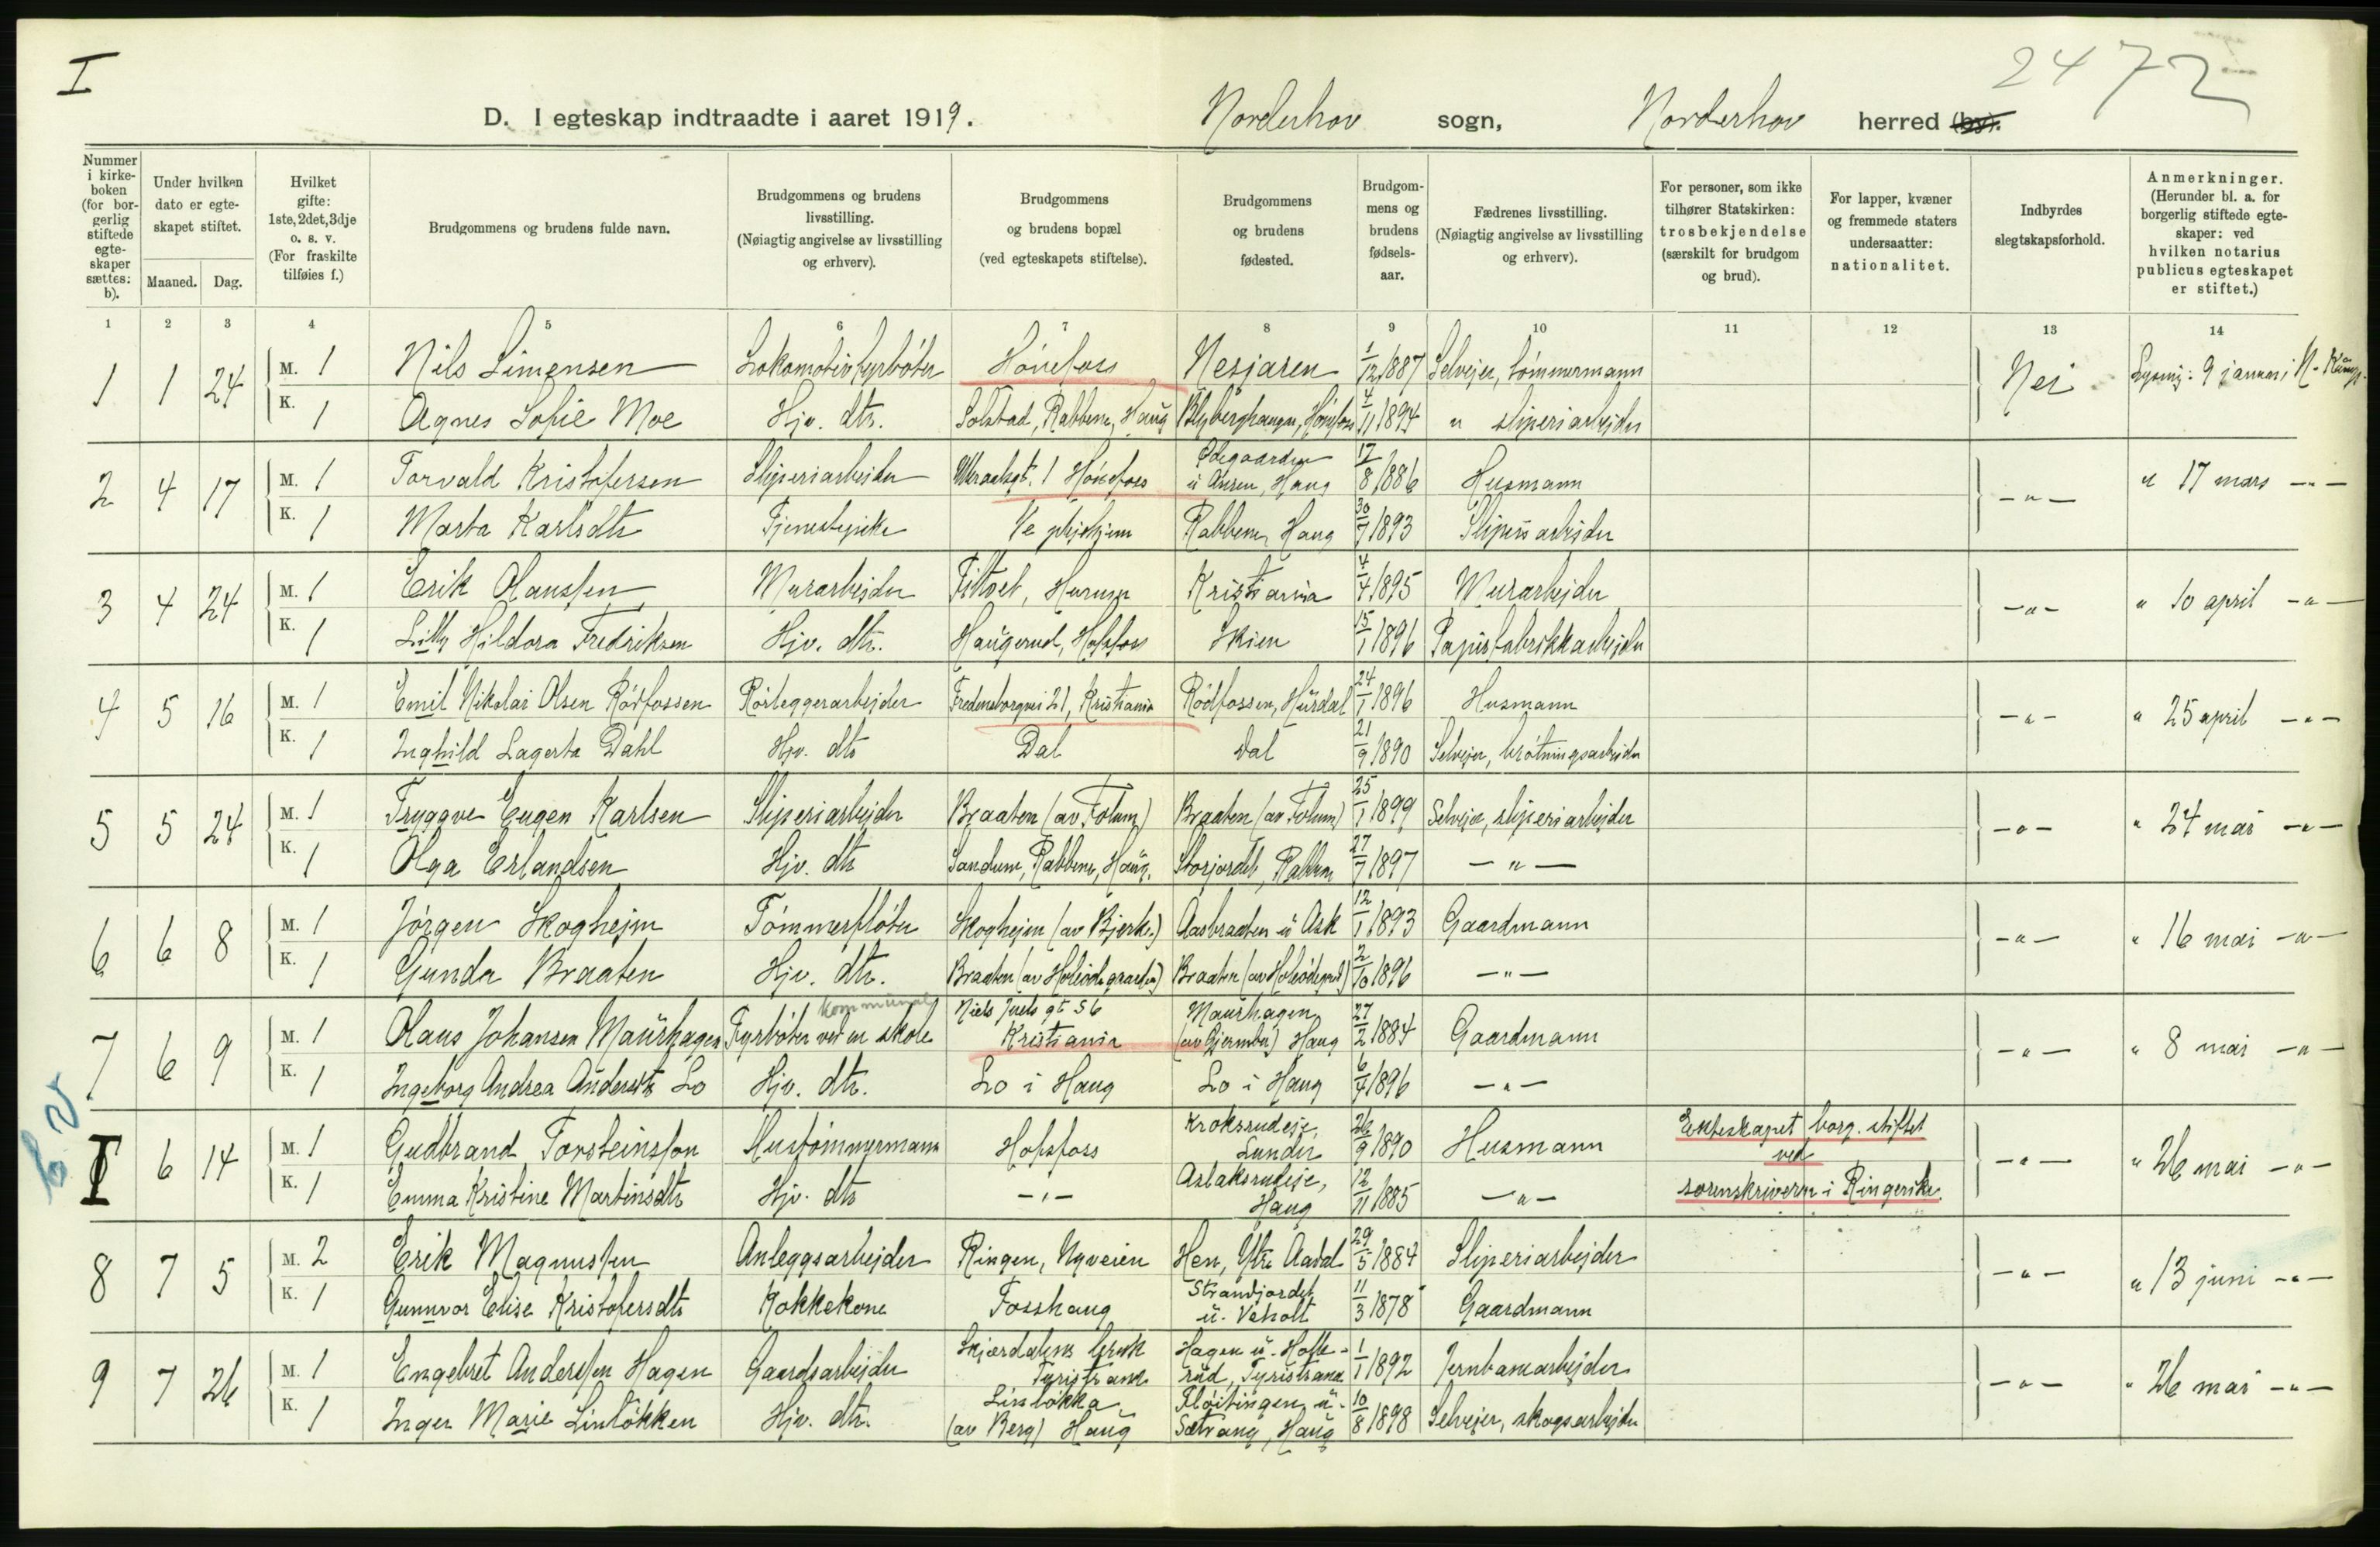 I
2472
D. I egteskap indtraadte i aaret 1919. Norderhov sogn, Norderhov herred (by).
Nummer i kirkeboken (for borgerlig stiftede egteskaper sættes: b).
Under hvilken dato er egteskapet stiftet.
Maaned. Dag.
Hvilket gifte: 1ste, 2det, 3dje o. s. v. (For fraskilte tilføies f.)
Brudgommens og brudens fulde navn.
Brudgommens og brudens livsstilling. (Nøiagtig angivelse av livsstilling og erhverv).
Brudgommens og brudens bopæl (ved egteskapets stiftelse).
Brudgommens og brudens fødested.
Brudgommens og brudens fødselsaar.
Fædrenes livsstilling. (Nøiagtig angivelse av livsstilling og erhverv).
For personer, som ikke tilhører Statskirken: trosbekjendelse (særskilt for brudgom og brud).
For lapper, kvæner og fremmede staters undersaatter: nationalitet.
Indbyrdes slegtskapsforhold.
Anmerkninger. (Herunder bl. a. for borgerlig stiftede egteskaper: ved hvilken notarius publicus egteskapet er stiftet.)
1 2 3 4 5 6 7 8 9 10 11 12 13 14
1 1 24 M. 1 Nils Simensen Lokomotivfyrbøter Hönefoss Nesjaren 1/12 1887 Selveier, tømmermann Nei Lysning: 9 januar i N.
K. 1 Agnes Sofie Moe Hjv. dtr. Solstad, Rabbem, Haug Blyberghaugen, Hönefoss 4/11 1894 " sliperiarbeider
2 4 17 M. 1 Torvald Kristofersen Sliperiarbeider 1 Hönefoss Ødegaarden u Aasen, Haug 17/8 1886 Husmann -"- " 17 mars -"-
K. 1 Marta Karlsdtr Tjenestepike Ve pleiehjem Rabbem, Haug 30/7 1893 Sliperiarbeider
3 4 24 M. 1 Erik Olaussen Murarbeider Hurum Kristiania 4/4 1895 Murarbeider -"- " 10 april -"-
K. 1 Lilly Hildora Fredriksen Hjv. dtr. Haugerud, Hofsfoss Skien 15/1 1896 Papirfabrikkarbeider
4 5 16 M. 1 Emil Nikolai Olsen Rödfossen Rörleggerarbeider Fredensborgvei 21, Kristiania Rödfossen, Hurdal 24/1 1896 Husmann -"- " 25 april -"-
K. 1 Inghild Lagerta Dahl Hjv. dtr Dal Dal 21/9 1890 Selveier, brötningsarbeider
5 5 24 M. 1 Tryggve Eugen Karlsen Sliperiarbeider Braaten (av Folum) Braaten (av Folum) 25/1 1899 Selveier, sliperiarbeider -"- " 27 mai -"-
K. 1 Olga Erlandsen Hjv. dtr Sandum, Rabbem, Haug. Storjordet, Rabbem 27/7 1897 -"-
6 6 8 M. 1 Jörgen Skogheim Tömmerflöter Skogheim (av Bjerke) Aasbraaten u Ask 12/1 1893 Gaardmann -"- " 16 mai -"-
K. 1 Gunda Braaten Hjv. dtr. Braaten (av Holeödegaarden) Braaten (av Holeödegrd) 2/10 1896 -"-
7 6 9 M. 1 Olaus Johansen Maurhagen Fyrböter ved en kommunal skole Niels Juels gt 56 Kristiania Maurhagen (av Gjermbu) Haug 27/2 1884 Gaardmann -"- " 8 mai -"-
K. 1 Ingeborg Andrea Andersdtr Lo Hjv. dtr. Lo i Haug Lo i Haug 6/4 1896 -"-
I 6 14 M. 1 Gudbrand Torsteinsson Hustömmermann Hofsfoss Kroksrudeie, Lunder 26/9 1890 Husmann Ekteskapet borg. stiftet ved sorenskriveren i Ringerike -"- " 26 mai -"-
K. 1 Emma Kristine Martinsdtr Hjv. dtr -"- Aslaksrudeie, Haug 12/11 1885 -"-
8 7 5 M. 2 Erik Magnussen Anleggsarbeider Ringen, Nyveien Hen, Ytre Aadal 29/5 1884 Sliperiarbeider -"- " 13 juni -"-
K. 1 Gunnvor Elise Kristofersdtr Kokkekone Fosshaug Strandjordet u. Veholt 11/3 1878 Gaardmann
9 7 26 M. 1 Engebret Anderssen Hagen Gaardsarbeider Skjærdalens bruk Tyristrand Hagen u. Holterud, Tyristrand 1/1 1892 Jernbanearbeider -"- " 26 mai -"-
K. 1 Inger Marie Linlökken Hjv. dtr. Linlökka (av Berg) Haug Flöitingen u. Sætrang, Haug 10/8 1898 Selveier, skogsarbeider